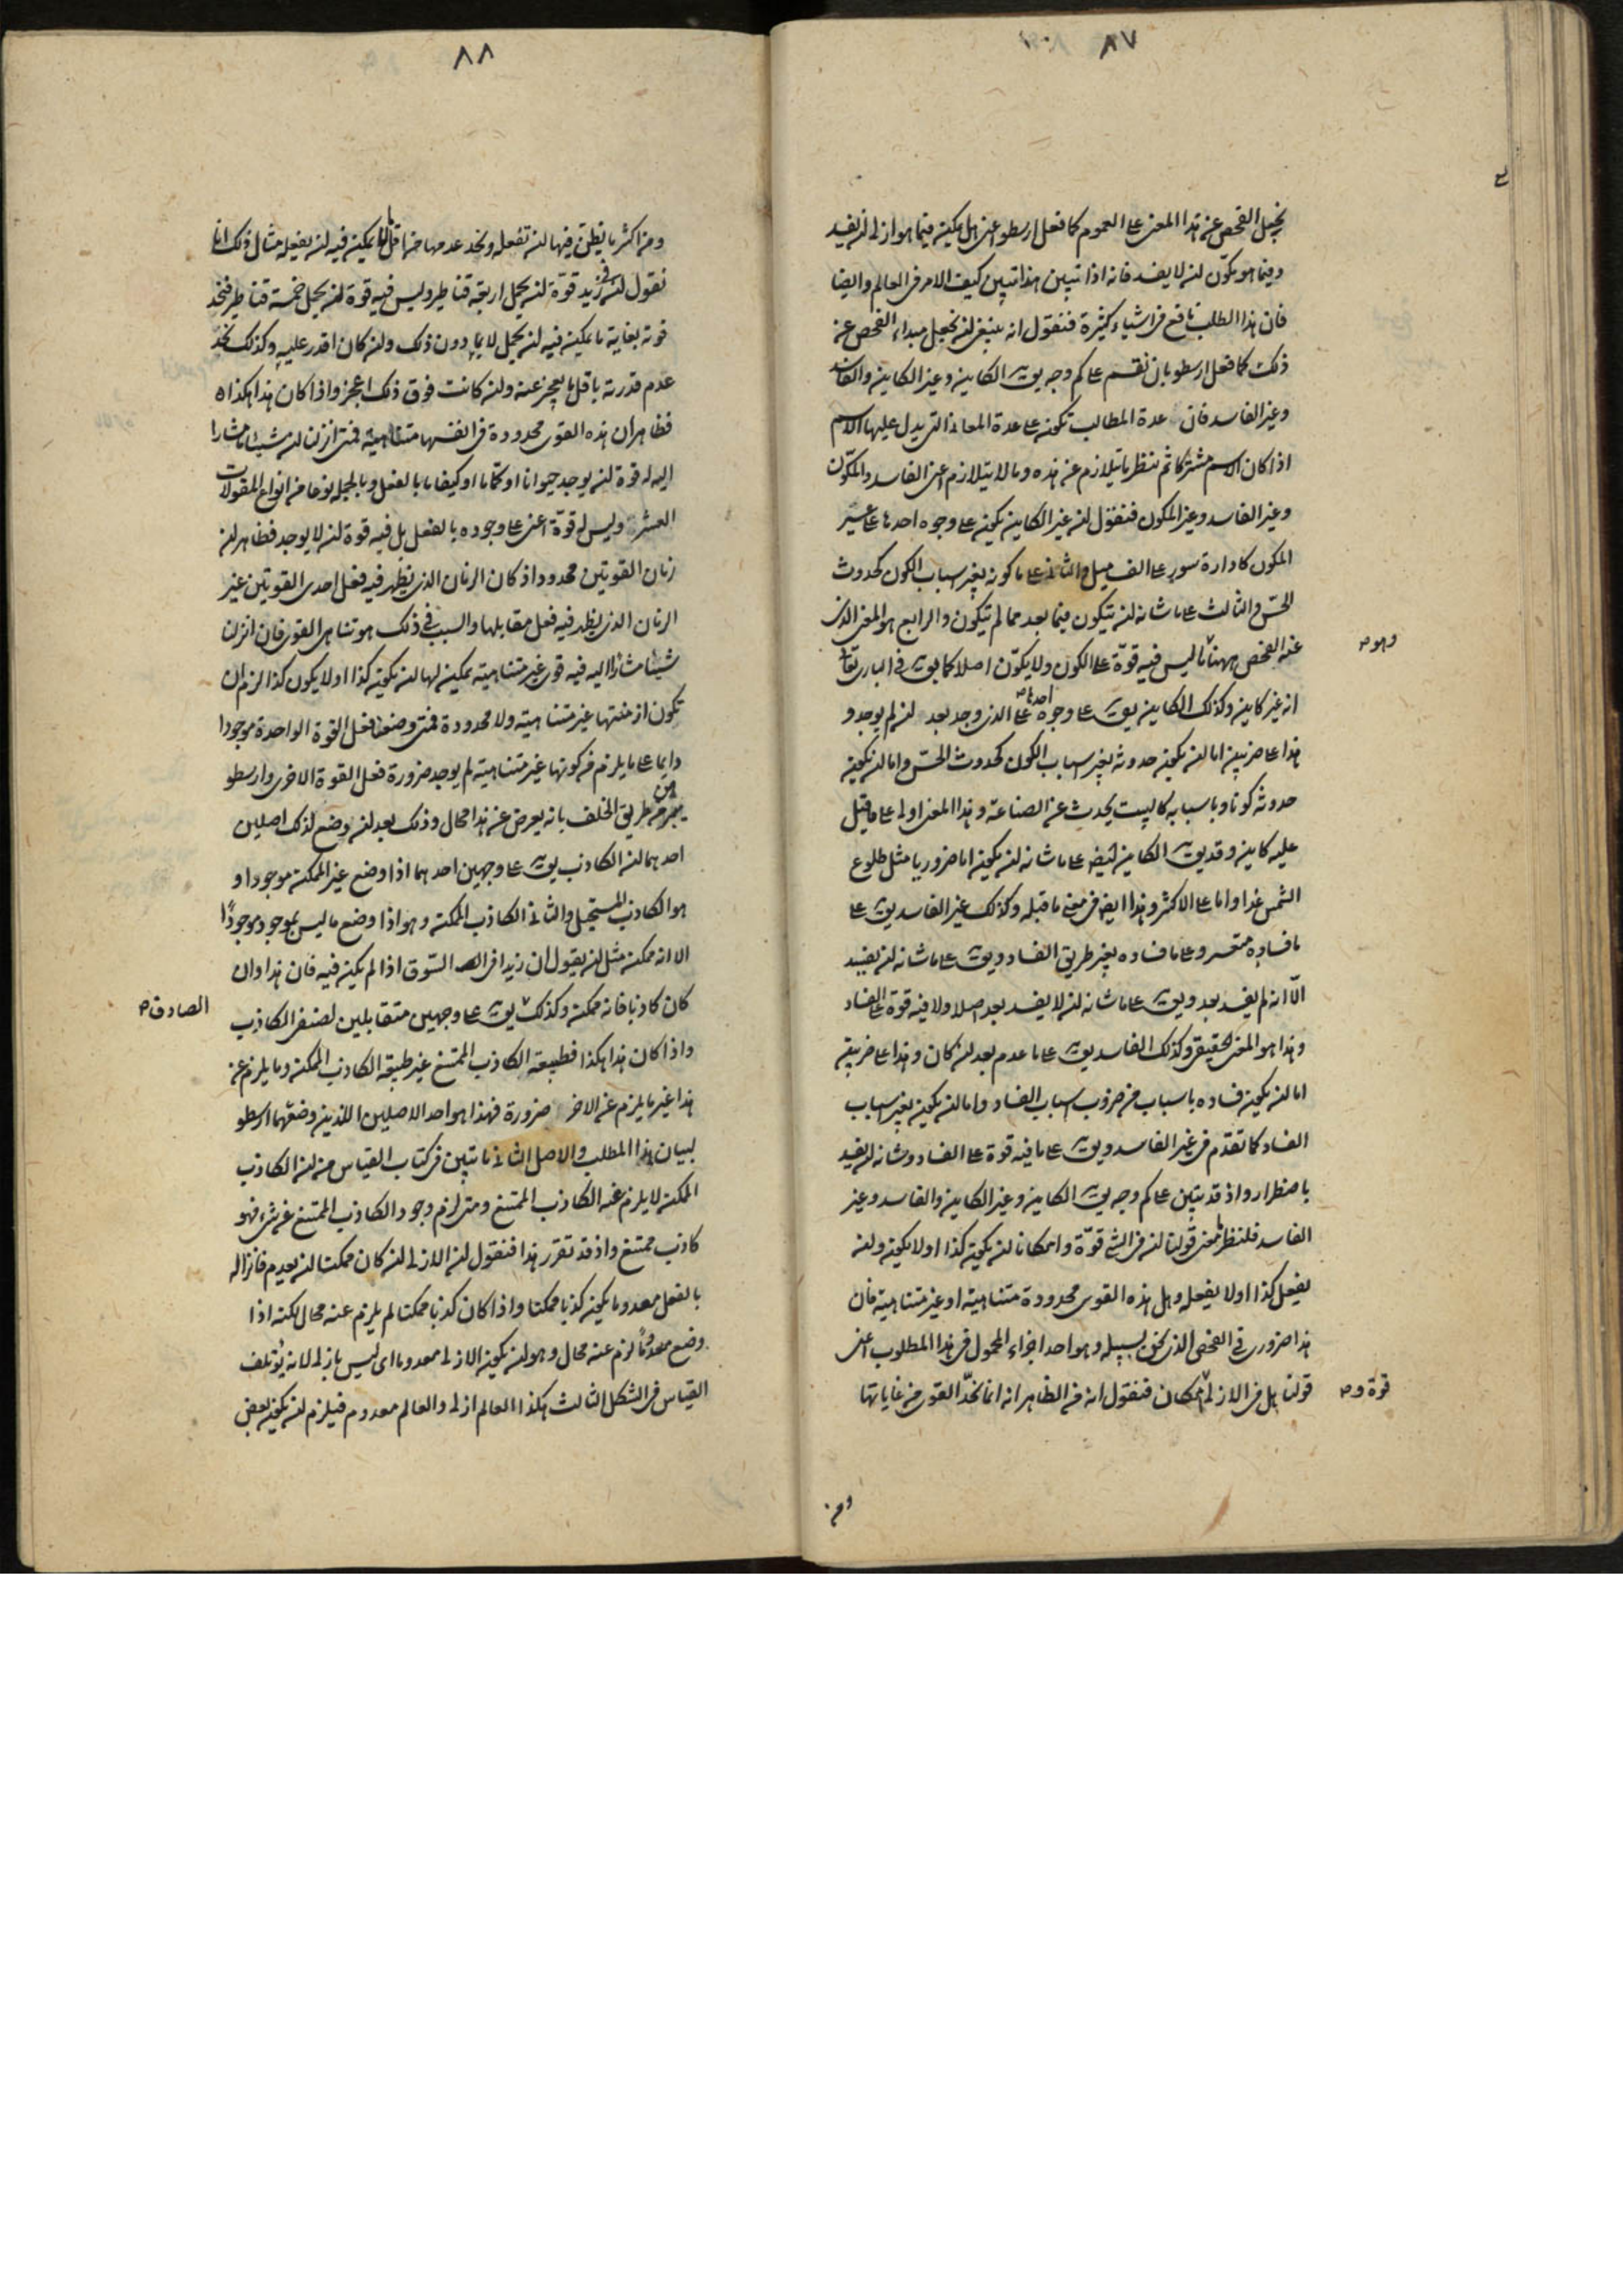 ٨٧
نجعل الفحص عن هذا المعنى على العموم كما فعل ارسطو اعنى هل يمكن فيما هو ازلى ان يفسد
وفيما هو مكوّن ان لا يفسد فانه اذا تبين هذا تبين كيف الامر فى العالم وايضا
فان هذا الطلب نافع فى اشياء كثيرة فنقول انه ينبغى ان نجعل مبداء الفحص عن
ذلك كما فعل ارسطو بان نقسم على كم وجه يق الكاين وغير الكاين والفاسد
وغير الفاسد فان عدة المطالب تكون على عدة المعانى التى يدل عليها الاسم
اذا كان الاسم مشتركا ثم ننظر ما يتلازم من هذه وما لا يتلازم اعنى الفاسد والمكوّن
وغير الفاسد وغير المكون فنقول ان غير الكاين يكون على وجوه احدها على عسير
المكون كادارة سور على الف ميل والثانى على ما كونه بغير اسباب الكون كحدوث
الحسّ والثالث على ما شانه ان يتكون فيما بعد مما لم يتكون والرابع هو المعنى الذى
عنه الفحص ههنا ما ليس فيه قوّة على الكون ولا يكوّن اصلا كما يق فى البارى تعا
وهو صح
انه غير كاين وكذلك الكاين يق على وجوه احدها صح على الذى وجد بعد ان لم يوجد و
هذا على ضربين اما ان يكون حدوثه بغير اسباب الكون كحدوث الحسّ واما ان يكون
حدوثه كونا وباسبابه كالبيت يحدث عن الصناعة وهذا المعنى اولى على ما قيل
عليه كاين وقد يق الكاين ايضا على ما شانه ان يكون اما ضروريا مثل طلوع
الشمس غدا واما على الاكثر وهذا ايضا فى معنى ما قبله وكذلك غير الفاسد يق على
ما فساده متعسر وعلى ما فساده بغير طريق الفساد ويق على ما شانه ان يفسد
الّا انه لم يفسد بعد ويق على ما شانه ان لا يفسد بعد اصلا ولا فيه قوة على الفساد
وهذا هو المعنى الحقيقى وكذلك الفاسد يق على ما عدم بعد ان كان وهذا على ضربين
اما ان يكون فساده باسباب من ضروب اسباب الفساد واما ان يكون بغير اسباب
الفساد كما تقدّم فى غير الفاسد ويق على ما فيه قوة على الفساد وشانه ان يفسد
باضطرار واذ قد تبين على كم وجه يق الكاين وغير الكاين والفاسد وغير
الفاسد فلننظر ما معنى قولنا ان فى الشى قوّة وامكانا ان يكون كذا او لا يكون وان
يفعل كذا او لا يفعله وهل هذه القوى محدودة متناهية او غير متناهية فان
هذا ضرورى فى الفحص الذى نحن بسبيله وهو احد اجزاء المحمول فى هذا المطلوب اعنى
قولنا هل فى الازلى امكان فنقول انه من الظاهر انه انما نحدّ القوى من غاياتها
قوة و صح
ومن
٨٨
ومن اكثر ما يظن فيها ان تفعله ونحد عدمها من اقل ما لا يمكن فيه ان يفعله مثال ذلك انا
نقول ان فى زيد قوة ان يحمل اربعة قناطير وليس فيه قوة ان يحمل خمسة قناطير فنحد
قوته بغاية ما يمكن فيه ان يحمل لا بما دون ذلك وان كان اقدر عليه وكذلك نحد
عدم قدرته باقل ما يعجز عنه وان كانت فوق ذلك اعجز واذا كان هذا هكذا
فظاهر ان هذه القوى محدودة فى انفسها متناهية فمتى انزلنا ان شيئا ما مشارا
اليه له قوة ان يوجد حيوانا او كمّا ما او كيفا ما بالفعل وبالجملة نوعا من انواع المقولات
العشر وليس له قوّة اعنى على وجوده بالفعل بل فيه قوة ان لا يوجد فظاهر ان
زمان القوتين محدود اذ كان الزمان الذى يظهر فيه فعل احدى القوتين غير
الزمان الذى يظهر فيه فعل مقابلها والسبب فى ذلك هو تناهى القوى فان انزلنا
شيئا مشارا اليه فيه قوى غير متناهية يمكن لها ان يكون كذا او لا يكون كذا لزم ان
تكون ازمنتها غير متناهية ولا محدودة فمتى وضعنا فعل القوة الواحدة موجودا
دايما على ما يلزم من كونها غير متناهية لم يوجد ضرورة فعل القوة الاخرى وارسطو
يبين من طريق الخلف بانه يعرض عن هذا محال وذلك بعد ان وضع لذلك اصلين
احدهما ان الكاذب يق على وجهين احدهما اذا وضع غير الممكن موجودا و
هو الكاذب المستحيل والثانى الكاذب الممكن وهو اذا وضع ما ليس بموجود موجودًا
الا انه ممكن مثل ان يقول ان زيدا فى السّوق اذا لم يكن فيه فان هذا وان
كان كاذبا فانه ممكن وكذلك يق على وجهين متقابلين لصنفى الكاذب
الصادق صح
واذا كان هذا هكذا فطبيعة الكاذب الممتنع غير طبيعة الكاذب الممكن وما يلزم عن
هذا غير ما يلزم عن الاخر ضرورة فهذا هو احد الاصلين اللذين وضعهما ارسطو
لبيان هذا المطلب والاصل الثانى ما تبين فى كتاب القياس من ان الكاذب
الممكن لا يلزم عنه الكاذب الممتنع ومتى لزم وجود الكاذب الممتنع عن شىء فهو
كاذب ممتنع واذ قد تقرر هذا فنقول ان الازلى ان كان ممكنا ان يعدم فانزاله
بالفعل معدوما يكون كذبا ممكنا واذا كان كذبا ممكنا لم يلزم عنه محال لكنه اذا
وضع معدومًا لزم عنه محال وهو ان يكون الازلى معدوما اى ليس بازلى لانه يؤتلف
القياس فى الشكل الثالث هكذا العالم ازلى والعالم معدوم فيلزم ان يكون بعض